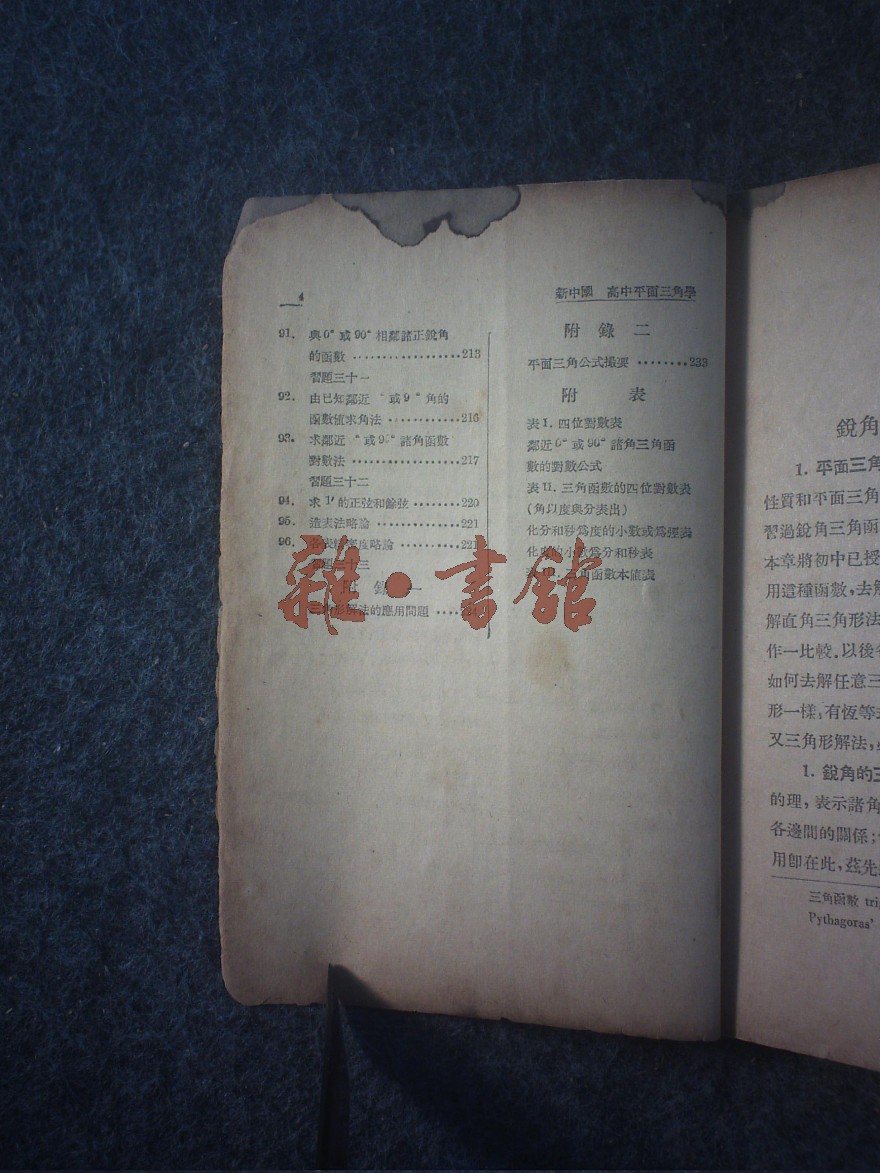 4
新中國 高中平面三角學
91. 與0°或90°相鄰諸正銳角
的函數 ··················213
習題三十一
92. 由已知鄰近 °或9 °角的
函數值求角法 ············216
93. 求鄰近 °或9 °諸角函數
對數法 ··················217
習題三十二
94. 求1′的正弦和餘弦 ········220
95. 造表法略論 ··············221
96. 度略論 ··········221
附錄
形解法的應用問題 ····
附錄二
平面三角公式撮要 ········233
附表
表I. 四位對數表
鄰近0°或90°諸角三角函
數的對數公式
表II. 三角函數的四位對數表
(角以度與分表出)
化分和秒爲度的小數或爲弳表
化度的小數爲分和秒表
三角函數本值表
雜·書館
銳角
1. 平面三角
性質和平面三角
習過銳角三角函
本章將初中已授
用這種函數,去解
解直角三角形法
作一比較.以後
如何去解任意三
形一樣,有恆等
又三角形解法,
1. 銳角的三
的理,表示諸角
各邊間的關係;
用卽在此,茲先
三角函數 tri
Pythagoras'